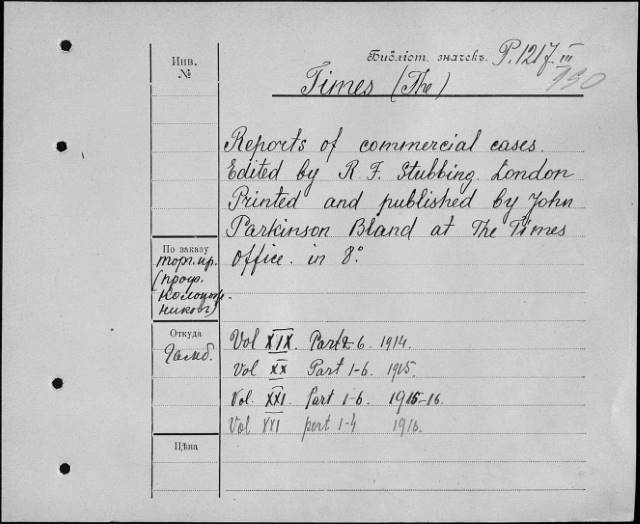 Инв. №
Библіот. значекъ. P.1217. III
930
Times (The)
Reports of commercial cases.
Edited by R. F. Stubbing. London
Printed and published by John
Parkinson Bland at The Times
Office. in 8º.
По заказу
торг. пр.
(проф.
никовъ)
Откуда
Vol XIX. Part 2-6. 1914.
Vol XX Part 1-6. 1915.
Vol. XXI. Part 1-6. 1915-16.
Vol XXI part 1-4 1916.
Цѣна